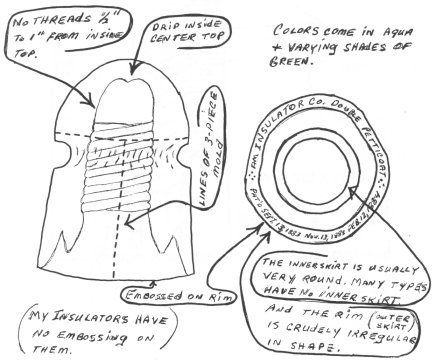 NO THREADS 1/2"
TO 1" FROM INSIDE
TOP.
DRIP INSIDE
CENTER TOP
COLORS COME IN AQUA
+ VARYING SHADES OF
GREEN.
LINES OF 3-PIECE
MOLD
AM. INSULATOR CO. DOUBLE PETTICOAT
PAT'D SEPT. 13, 1881 NOV. 13, 1883 FEB. 12, 1884
EMBOSSED ON RIM
(MY INSULATORS HAVE
NO EMBOSSING ON
THEM.)
THE INNERSKIRT IS USUALLY
VERY ROUND. MANY TYPES
HAVE NO INNERSKIRT.
AND THE RIM (OUTER SKIRT)
IS CRUDELY IRREGULAR
IN SHAPE.